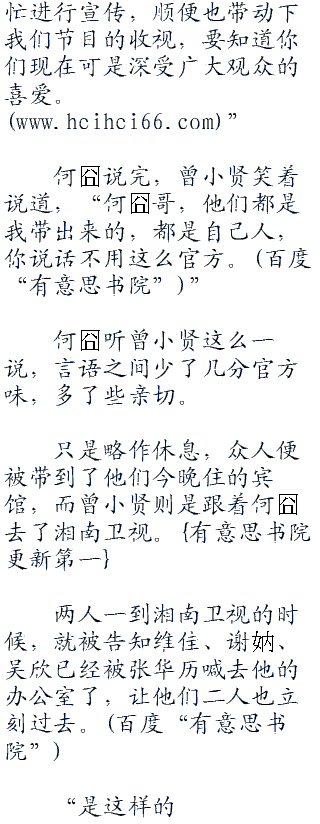 忙进行宣传，顺便也带动下
我们节目的收视，要知道你
们现在可是深受广大观众的
喜爱。
(www.hcihci66.com)”
何囧说完，曾小贤笑着
说道，“何囧哥，他们都是
我带出来的，都是自己人，
你说话不用这么官方。(百度
“有意思书院”)”
何囧听曾小贤这么一
说，言语之间少了几分官方
味，多了些亲切。
只是略作休息，众人便
被带到了他们今晚住的宾
馆，而曾小贤则是跟着何囧
去了湘南卫视。{有意思书院
更新第一}
两人一到湘南卫视的时
候，就被告知维住、谢妠、
吴欣已经被张华历喊去他的
办公室了，让他们二人也立
刻过去。(百度“有意思书
院”)
“是这样的